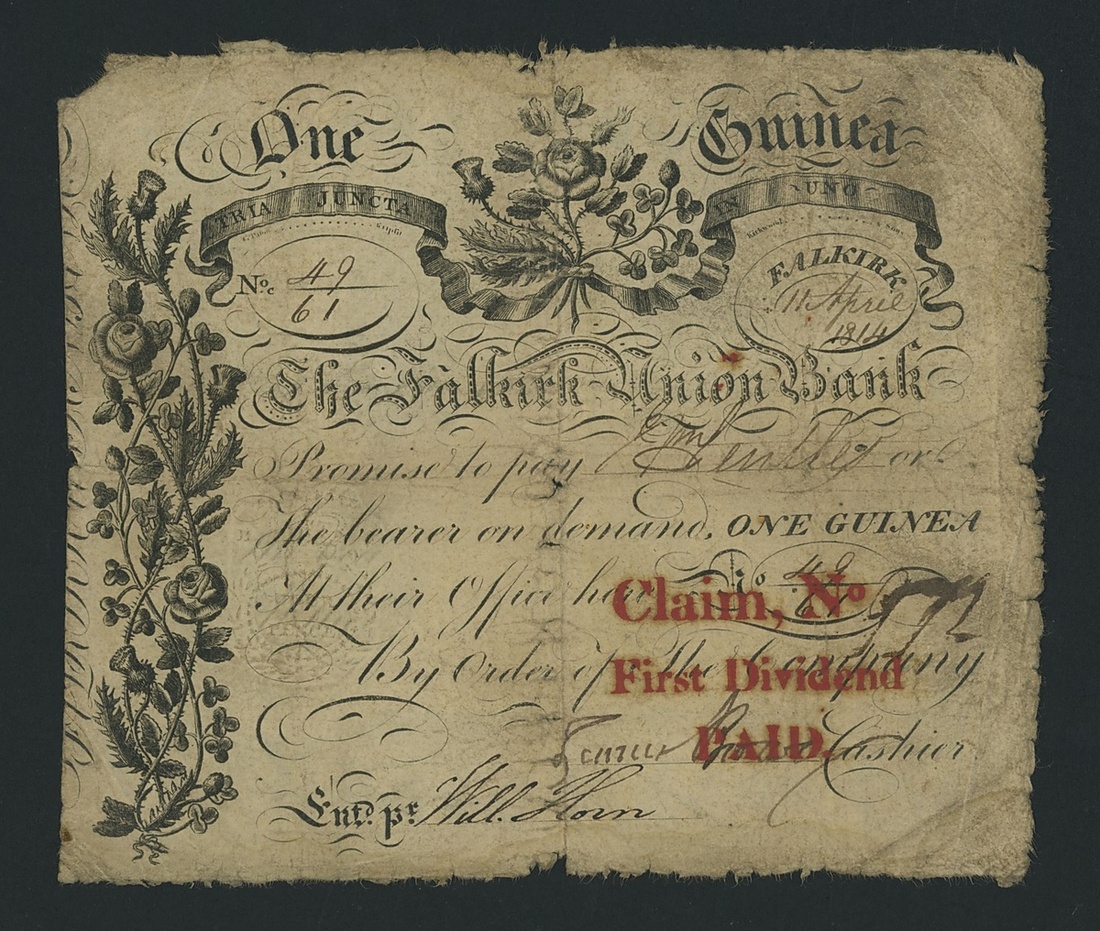 One Guinea
TRIA JUNCTA IN UNO
Kirkwood & Sons
No. 49/61
FALKIRK
1st April
1814
The Falkirk Union Bank
Promise to pay or
The bearer on demand, ONE GUINEA
At their Office here No 49
By Order of The Company
Cashier
Claim, No
First Dividend
PAID
Entd. pr. Will. Horn